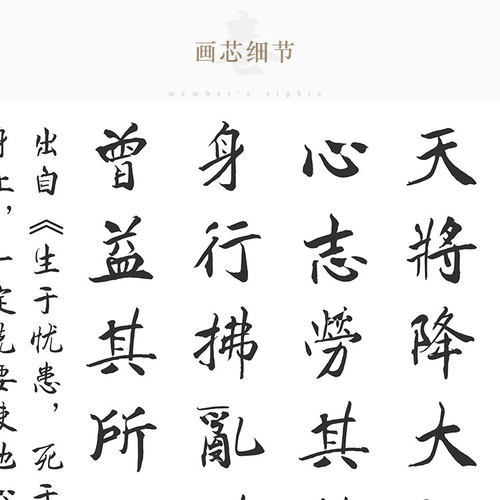 画芯细节
member's rights
天將降大
心志勞其
身行拂亂
曾益其所
出自《生于忧患，死于
上，一定先要使他